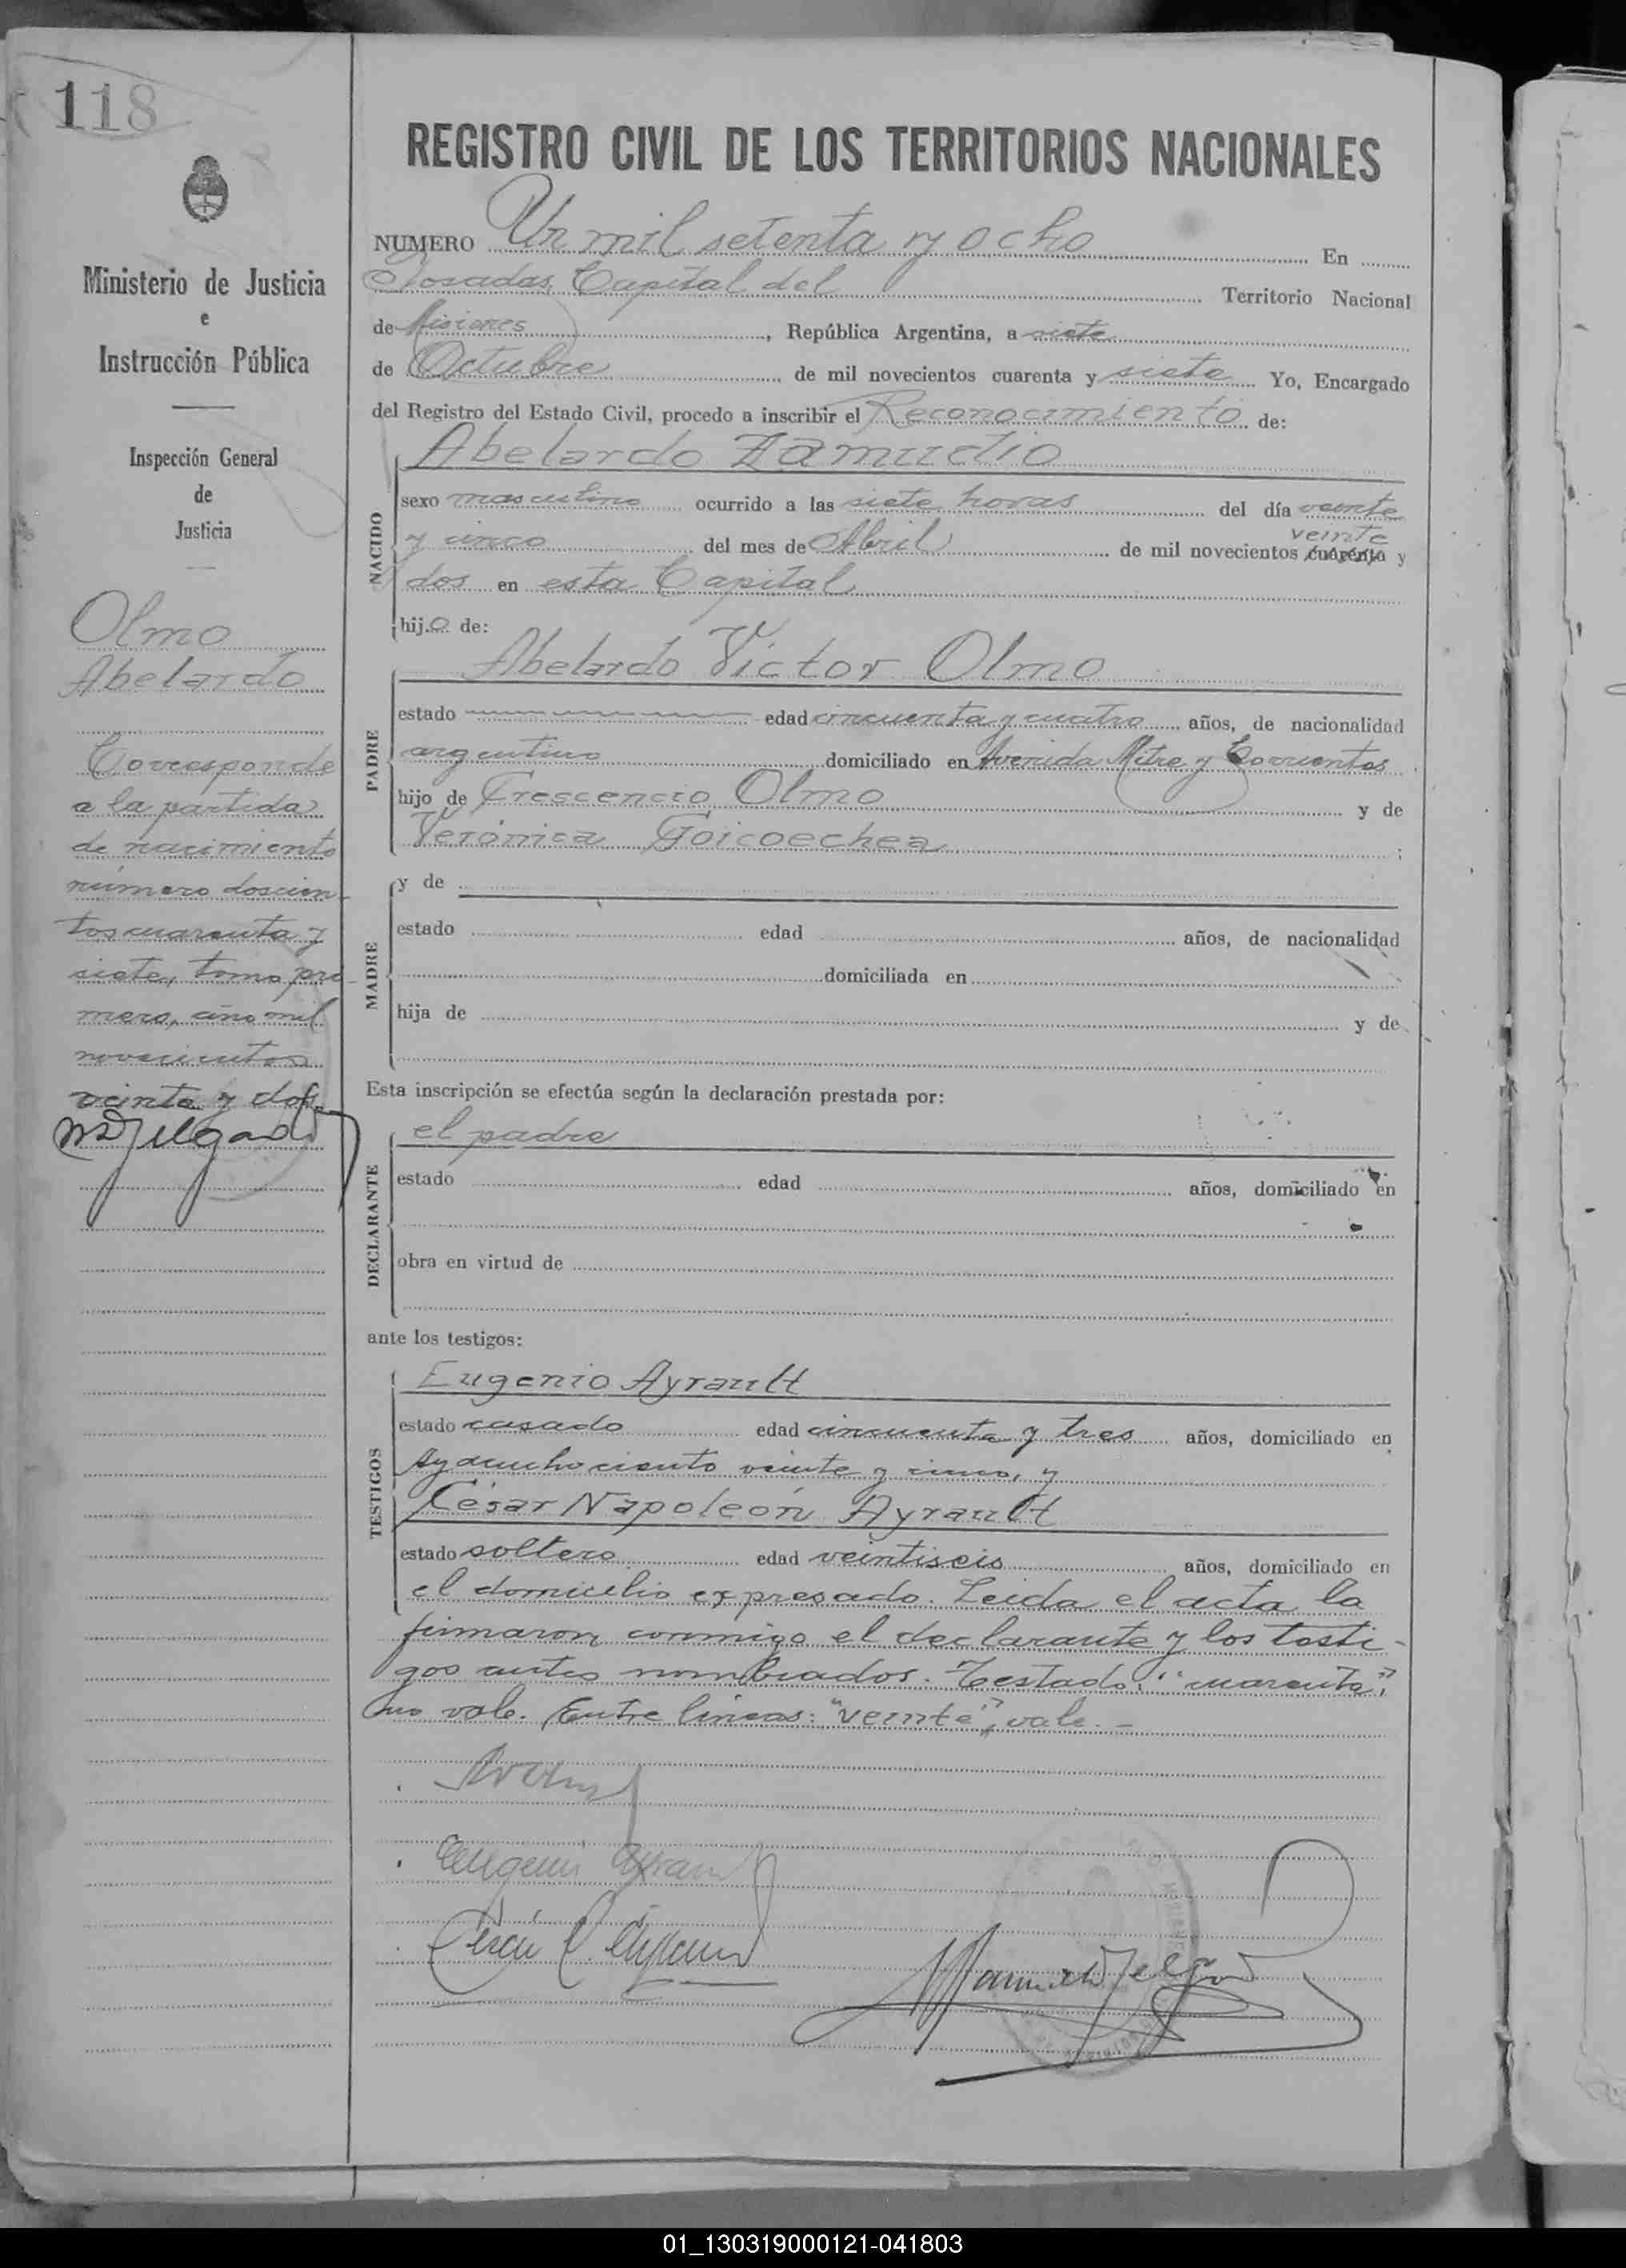 118
Ministerio de Justicia
e
Instrucción Pública
Inspección General
de
Justicia
Olmo
Abelardo
Corresponde
a la partida
de nacimiento
número doscien-
tos cuarenta y
siete, tomo pri-
mero, año mil
novecientos
veinte y dos.
REGISTRO CIVIL DE LOS TERRITORIOS NACIONALES
NUMERO Un mil setenta y ocho En
Posadas, Capital del Territorio Nacional
de Misiones, República Argentina, a siete
de Octubre de mil novecientos cuarenta y siete Yo, Encargado
del Registro del Estado Civil, procedo a inscribir el Reconocimiento de:
Abelardo Zamudio
NACIDO
sexo masculino ocurrido a las siete horas del día veinte
y cinco del mes de Abril de mil novecientos cuarenta veinte y
dos en esta Capital
hijo de:
Abelardo Víctor Olmo
PADRE
estado edad cincuenta y cuatro años, de nacionalidad
argentino domiciliado en Avenida Mitre y Corrientes
hijo de Crescencio Olmo y de
Verónica Goicoechea ;
MADRE
y de
estado edad años, de nacionalidad
domiciliada en
hija de y de
Esta inscripción se efectúa según la declaración prestada por:
DECLARANTE
el padre
estado edad años, domiciliado en
obra en virtud de
ante los testigos:
TESTIGOS
Eugenio Ayrault
estado casado edad cincuenta y tres años, domiciliado en
Ayacucho ciento veinte y cinco, y
César Napoleón Ayrault
estado soltero edad veintiseis años, domiciliado en
el domicilio expresado. Leida el acta la
firmaron conmigo el declarante y los testi-
gos antes nombrados. Testado: "cuarenta",
no vale. Entre líneas: "veinte", vale. -
Eugenio Ayrault
01_130319000121-041803